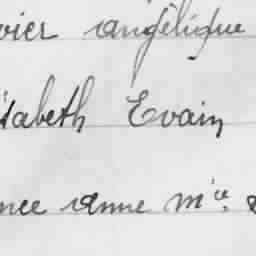 vier angélique
isabeth Evain
nce anne mie.